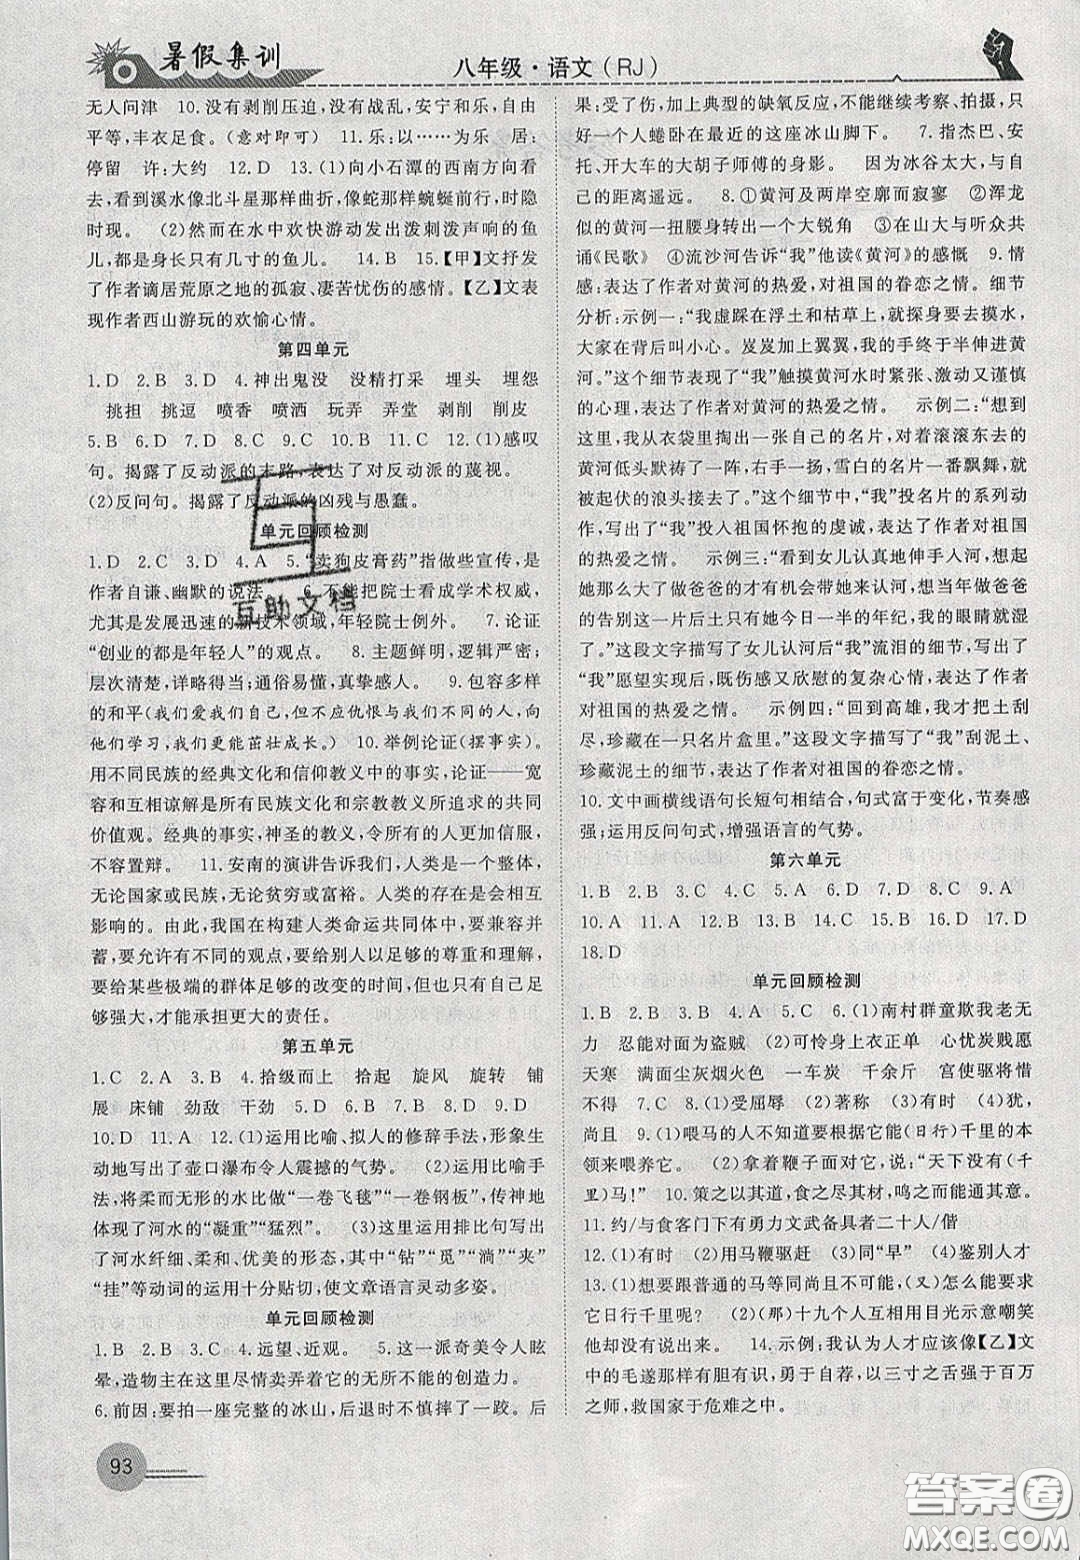 暑假集训
八年级·语文(RJ)
无人问津 10.没有剥削压迫,没有战乱,安宁和乐,自由
平等,丰衣足食。(意对即可) 11.乐:以……为乐 居:
停留 许:大约 12.D 13.(1)向小石潭的西南方向看
去,看到溪水像北斗星那样曲折,像蛇那样蜿蜒前行,时隐
时现。 (2)然而在水中欢快游动发出泼刺泼声响的鱼
儿,都是身长只有几寸的鱼儿。 14.B 15.【甲】文抒发
了作者谪居荒原之地的孤寂、凄苦忧伤的感情。【乙】文表
现作者西山游玩的欢愉心情。
第四单元
1.D 2.B 3.D 4.神出鬼没 没精打采 埋头 埋怨
挑担 挑逗 喷香 喷洒 玩弄 弄堂 剥削 削皮
5.B 6.D 7.D 8.C 9.C 10.B 11.C 12.(1)感叹
句。揭露了反动派的末路,表达了对反动派的蔑视。
(2)反问句。揭露了反动派的凶残与愚蠢。
单元回顾检测
1.D 2.C 3.D 4.A 5.“卖狗皮膏药”指做些宣传,是
作者自谦、幽默的说法。 6.不能把院士看成学术权威,
尤其是发展迅速的新技术领域,年轻院士例外。 7.论证
“创业的都是年轻人”的观点。 8.主题鲜明,逻辑严密;
层次清楚,详略得当;通俗易懂,真挚感人。 9.包容多样
的和平(我们爱我们自己,但不应仇恨与我们不同的人,向
他们学习,我们更能茁壮成长。) 10.举例论证(摆事实)。
用不同民族的经典文化和信仰教义中的事实,论证——宽
容和互相谅解是所有民族文化和宗教教义所追求的共同
价值观。经典的事实,神圣的教义,令所有的人更加信服,
不容置辩。 11.安南的演讲告诉我们,人类是一个整体,
无论国家或民族,无论贫穷或富裕。人类的存在是会相互
影响的。由此,我国在构建人类命运共同体中,要兼容并
蓄,要允许有不同的观点,要给别人以足够的尊重和理解,
要给某些极端的群体足够的改变的时间,我们自己足
够强大,才能承担更大的责任。
第五单元
1.C 2.A 3.B 4.拾级而上 拾起 旋风 旋转 铺
展 床铺 劲敌 干劲 5.D 6.B 7.A 8.B 9.D
10.D 11.A 12.(1)运用比喻、拟人的修辞手法,形象生
动地写出了壶口瀑布令人震撼的气势。 (2)运用比喻手
法,将柔而无形的水比做“一卷飞毯”“一卷钢板”,传神地
体现了河水的“凝重”“猛烈”。 (3)这里运用排比句写出
了河水纤细、柔和、优美的形态,其中“钻”“觅”“淌”“夹”
“挂”等动词的运用十分贴切,使文章语言灵动多姿。
单元回顾检测
1.B 2.B 3.C 4.远望、近观。 5.这一派奇美令人眩
晕,造物主在这里尽情卖弄着它的无所不能的创造力。
6.前因:要拍一座完整的冰山,退时不慎摔了一跤。后
果:受了伤,加上典型的缺氧反应,不能继续考察、拍摄,只
好一个人蜷卧在最近的这座冰山脚下。 7.指杰巴、安
托、开大车的大胡子师傅的身影。 因为冰谷太大,与自
己的距离遥远。 8.①黄河及两岸空廓而寂寥 ②浑龙
似的黄河一扭腰身转出一个大锐角 ③在山大与听众共
诵《民歌》 ④流沙河告诉“我”他读《黄河》的感慨 9.情
感:表达了作者对黄河的热爱,对祖国的眷恋之情。细节
分析:示例一:“我虚踩在浮土和枯草上,就探身要去摸水,
大家在背后叫小心。岌岌加上翼翼,我的手终于半伸进黄
河。”这个细节表现了“我”触摸黄河水时紧张、激动又谨慎
的心理,表达了作者对黄河的热爱之情。 示例二:“想到
这里,我从衣袋里掏出一张自己的名片,对着滚滚东去的
黄河低头默祷了一阵,右手一扬,雪白的名片一番飘舞,就
被起伏的浪头接去了。”这个细节中,“我”投名片的系列动
作,写出了“我”投入祖国怀抱的虔诚,表达了作者对祖国
的热爱之情。 示例三:“看到女儿认真地伸手入河,想起
她那么大了做爸爸的才有机会带她来认河,想当年做爸爸
的告别这一片后土只有她今日一半的年纪,我的眼睛就湿
了。”这段文字描写了女儿认河后“我”流泪的细节,写出了
“我”愿望实现后,既伤感又欣慰的复杂心情,表达了作者
对祖国的热爱之情。 示例四:“回到高雄,我才把土刮
尽,珍藏在一只名片盒里。”这段文字描写了“我”刮泥土、
珍藏泥土的细节,表达了作者对祖国的眷恋之情。
10.文中画横线语句长短句相结合,句式富于变化,节奏感
强;运用反问句式,增强语言的气势。
第六单元
1.B 2.B 3.C 4.C 5.A 6.D 7.D 8.C 9.A
10.A 11.A 12.B 13.B 14.C 15.B 16.D 17.D
18.D
单元回顾检测
1.B 2.D 3.D 4.A 5.C 6.(1)南村群童欺我老无
力 忍能对面为盗贼 (2)可怜身上衣正单 心忧炭贱愿
天寒 满面尘灰烟火色 一车炭 千余斤 宫使驱将惜
不得 7.C 8.(1)受屈辱 (2)著称 (3)有时 (4)犹,
尚且 9.(1)喂马的人不知道要根据它能(日行)千里的本
领来喂养它。 (2)拿着鞭子面对它,说:“天下没有(千
里)马! 10.策之以其道,食之尽其材,鸣之而能通其意。
11.约/与食客门下有勇力文武备具者二十人/偕
12.(1)有时 (2)用马鞭驱赶 (3)同“早” (4)鉴别人才
13.(1)想要跟普通的马等同尚且不能,(又)怎么能要求
它日行千里呢? (2)(那)十九个人互相用目光示意嘲笑
他却未说出来。 14.示例:我认为人才应该像【乙】文
中的毛遂那样有胆有识,勇于自荐,以三寸之舌强于百万
之师,救国家于危难之中。
互助文档
93
答案圈
MXQE.COM